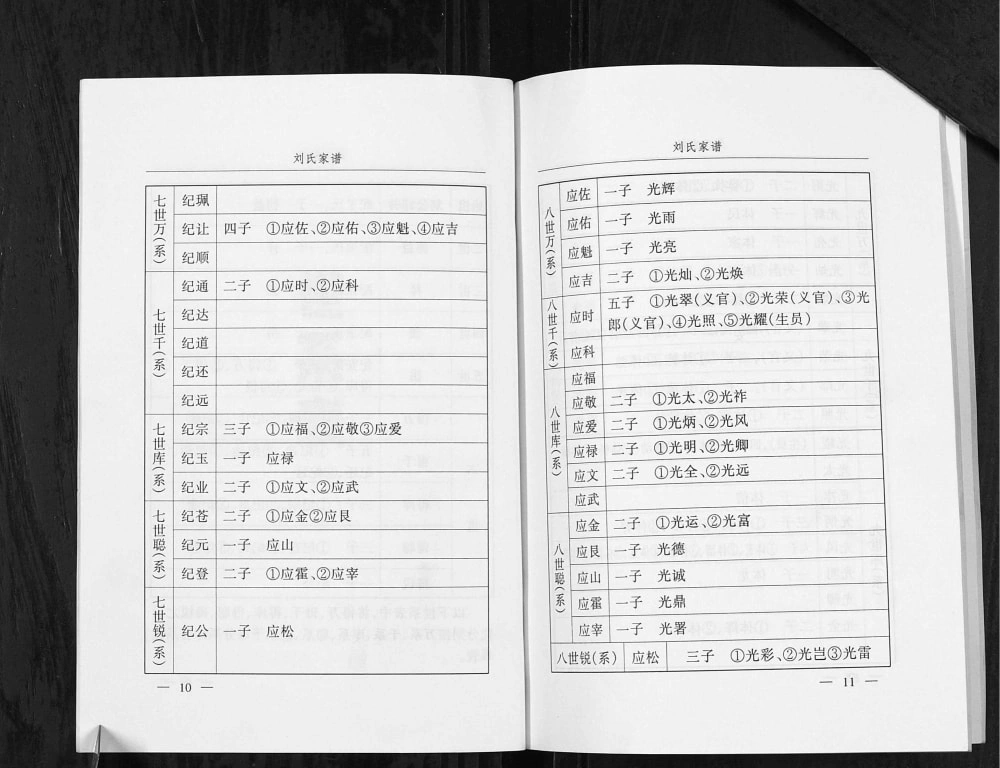 刘氏家谱
七世万(系)
纪珮
纪让 四子 ①应佐、②应佑、③应魁、④应吉
纪顺
七世千(系)
纪通 二子 ①应时、②应科
纪达
纪道
纪还
纪远
七世库(系)
纪宗 三子 ①应福、②应敬③应爱
纪玉 一子 应禄
纪业 二子 ①应文、②应武
七世聪(系)
纪苍 二子 ①应金②应艮
纪元 一子 应山
纪登 二子 ①应霍、②应宰
七世锐(系)
纪公 一子 应松
— 10 —
刘氏家谱
八世万(系)
应佐 一子 光辉
应佑 一子 光雨
应魁 一子 光亮
应吉 二子 ①光灿、②光焕
八世千(系)
应时 五子 ①光翠(义官)、②光荣(义官)、③光
郎(义官)、④光照、⑤光耀(生员)
应科
八世库(系)
应福
应敬 二子 ①光太、②光祚
应爱 二子 ①光炳、②光风
应禄 二子 ①光明、②光卿
应文 二子 ①光全、②光远
应武
八世聪(系)
应金 二子 ①光运、②光富
应艮 一子 光德
应山 一子 光诚
应霍 一子 光鼎
应宰 一子 光署
八世锐(系) 应松 三子 ①光彩、②光岂③光雷
— 11 —